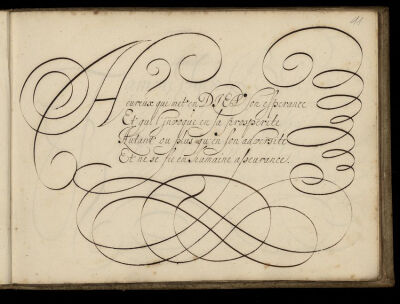 41
Heureux qui met en DIEV son esperance
Et qui l'invoque en sa prosperite
Autant ou plus qu'en son adversite
Et ne se fie en humaine asseurance.